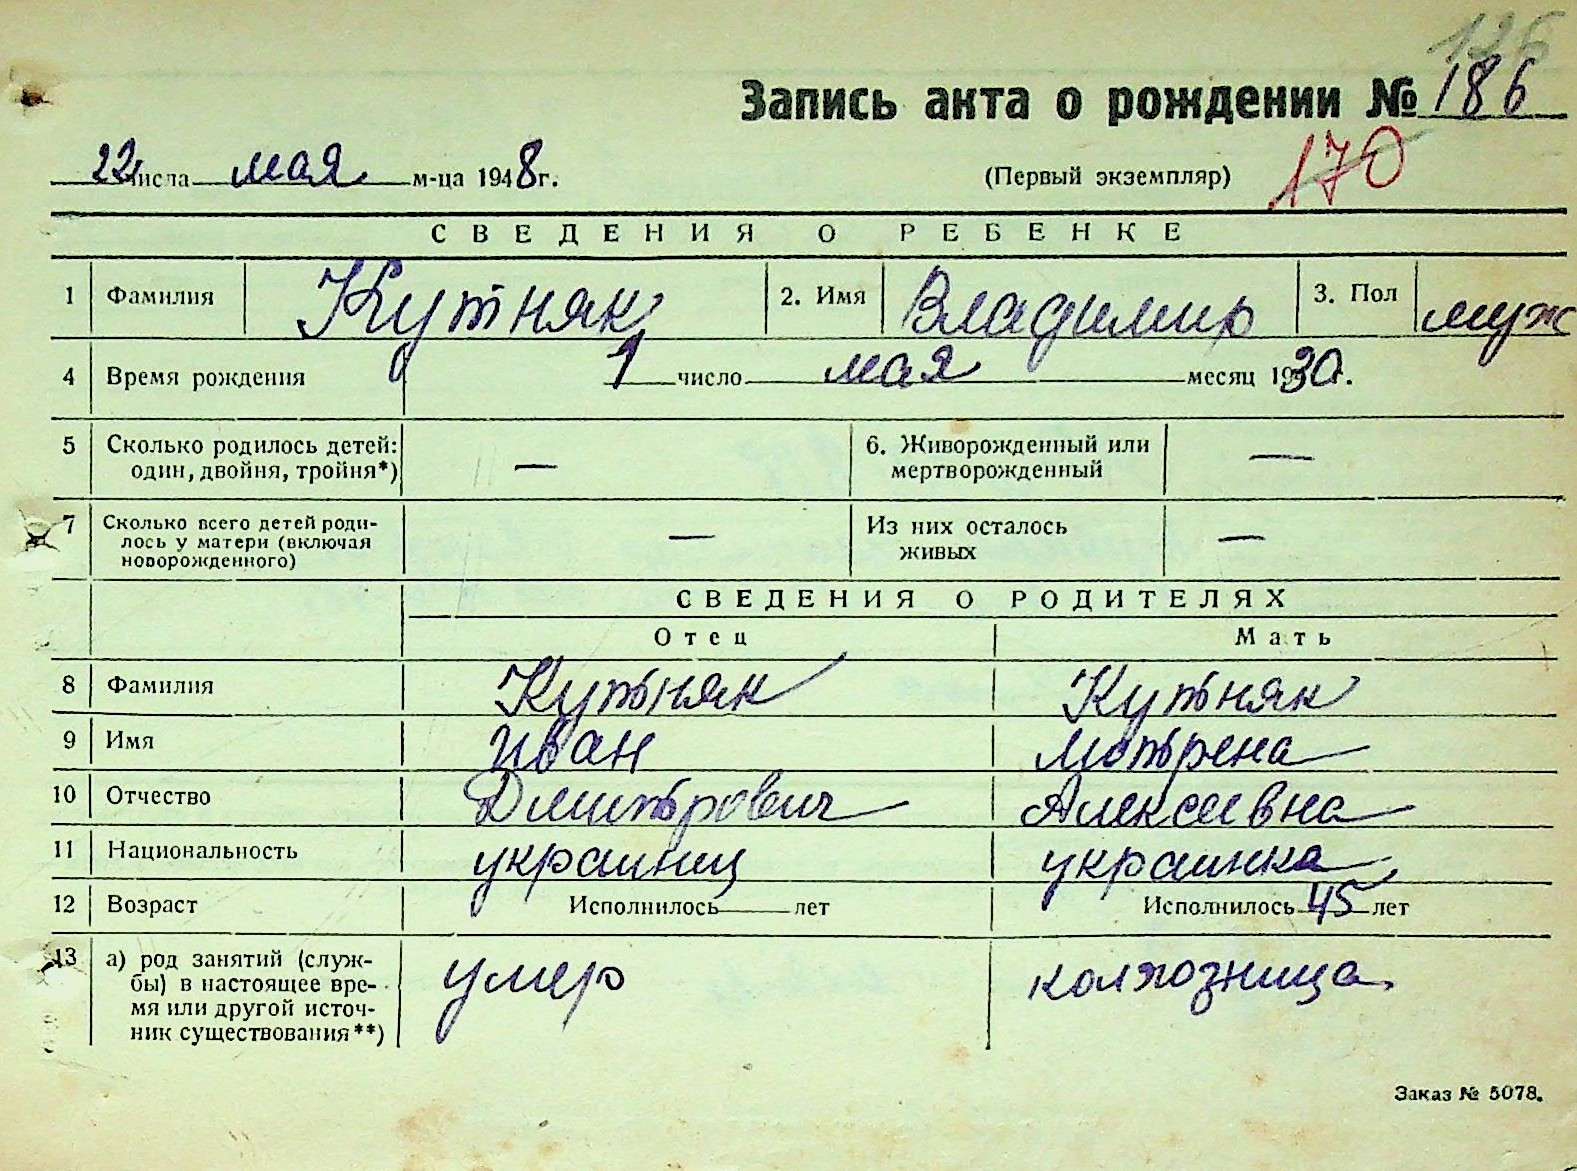 126
Запись акта о рождении № 186
22 числа мая м-ца 1948 г. (Первый экземпляр) 170
СВЕДЕНИЯ О РЕБЕНКЕ
1 Фамилия Кутняк 2. Имя Владимир 3. Пол муж
4 Время рождения 1 число мая месяц 1930 г.
5 Сколько родилось детей: один, двойня, тройня*) — 6. Живорожденный или мертворожденный —
7 Сколько всего детей родилось у матери (включая новорожденного) — Из них осталось живых —
СВЕДЕНИЯ О РОДИТЕЛЯХ
Отец Мать
8 Фамилия Кутняк Кутняк
9 Имя Иван Мотрена
10 Отчество Дмитрович Алексеевна
11 Национальность украинец украинка
12 Возраст Исполнилось лет Исполнилось 45 лет
13 а) род занятий (служ- умер колхозница
бы) в настоящее вре-
мя или другой источ-
ник существования**)
Заказ № 5078.